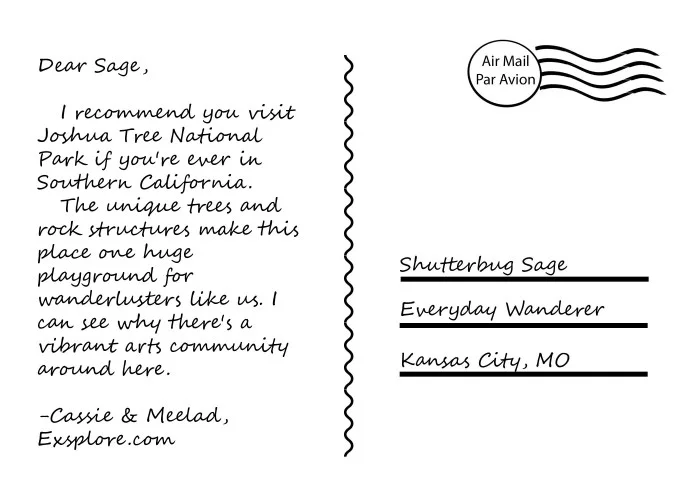 Dear Sage,
I recommend you visit
Joshua Tree National
Park if you're ever in
Southern California.
The unique trees and
rock structures make this
place one huge
playground for
wanderlusters like us. I
can see why there's a
vibrant arts community
around here.
-Cassie & Meelad,
Exsplore.com
Air Mail
Par Avion
Shutterbug Sage
Everyday Wanderer
Kansas City, MO